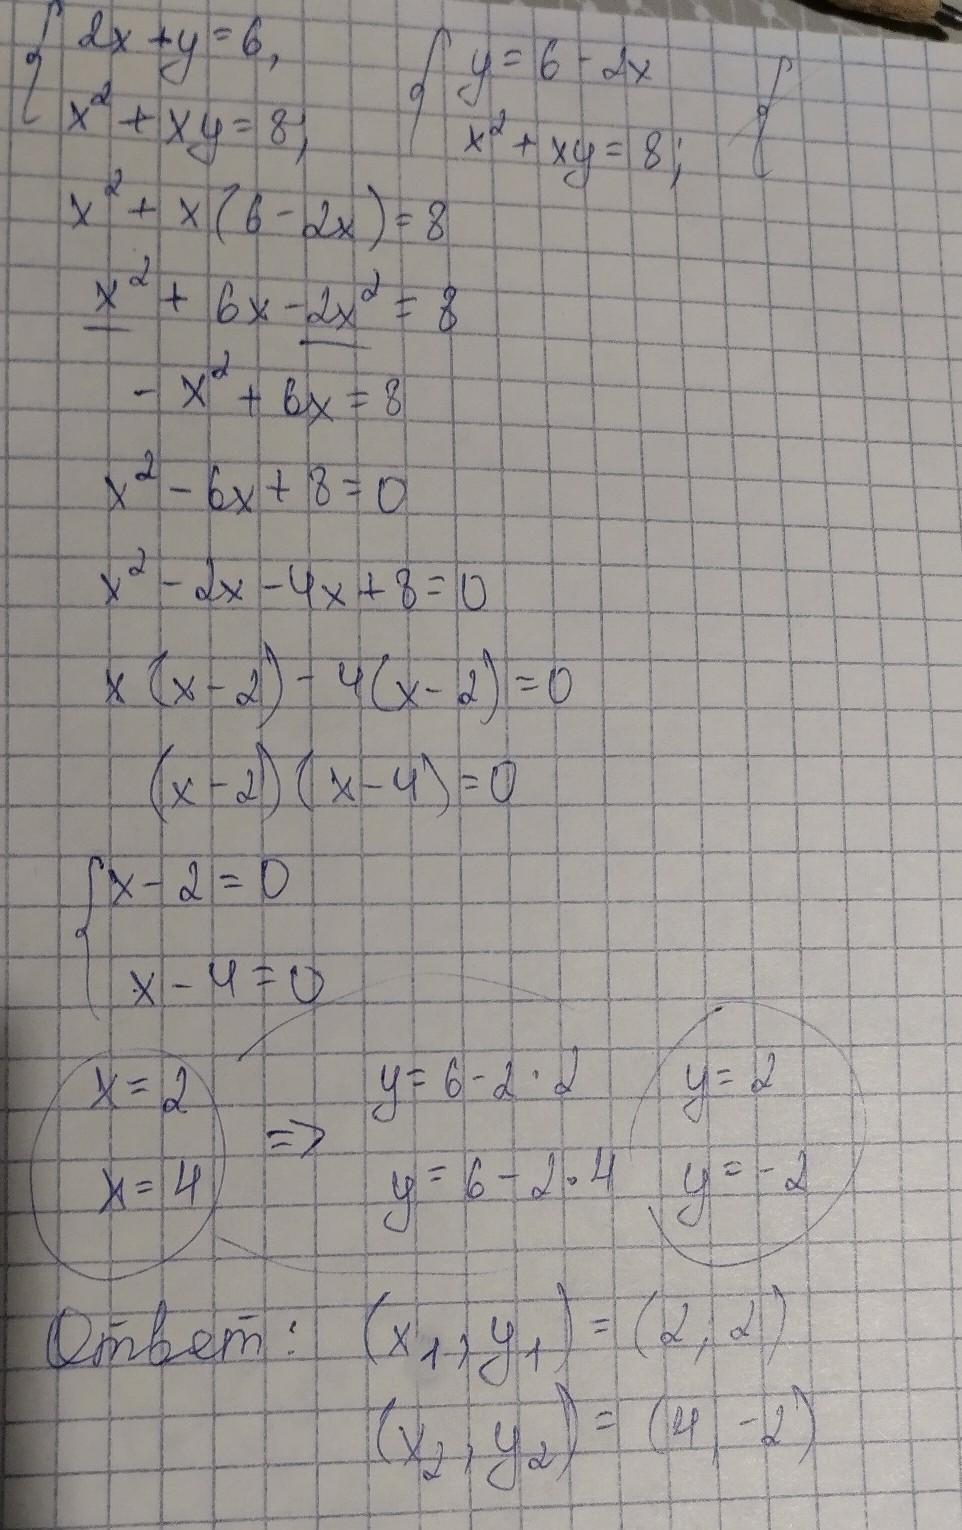 { 2x + y = 6, { y = 6 - 2x {
x² + xy = 8; x² + xy = 8;
x² + x(6 - 2x) = 8
x² + 6x - 2x² = 8
- x² + 6x = 8
x² - 6x + 8 = 0
x² - 2x - 4x + 8 = 0
x(x - 2) - 4(x - 2) = 0
(x - 2)(x - 4) = 0
{ x - 2 = 0
x - 4 = 0
x = 2 y = 6 - 2 · 2 y = 2
=>
x = 4 y = 6 - 2 · 4 y = -2
Ответ: (x₁, y₁) = (2, 2)
(x₂, y₂) = (4, -2)